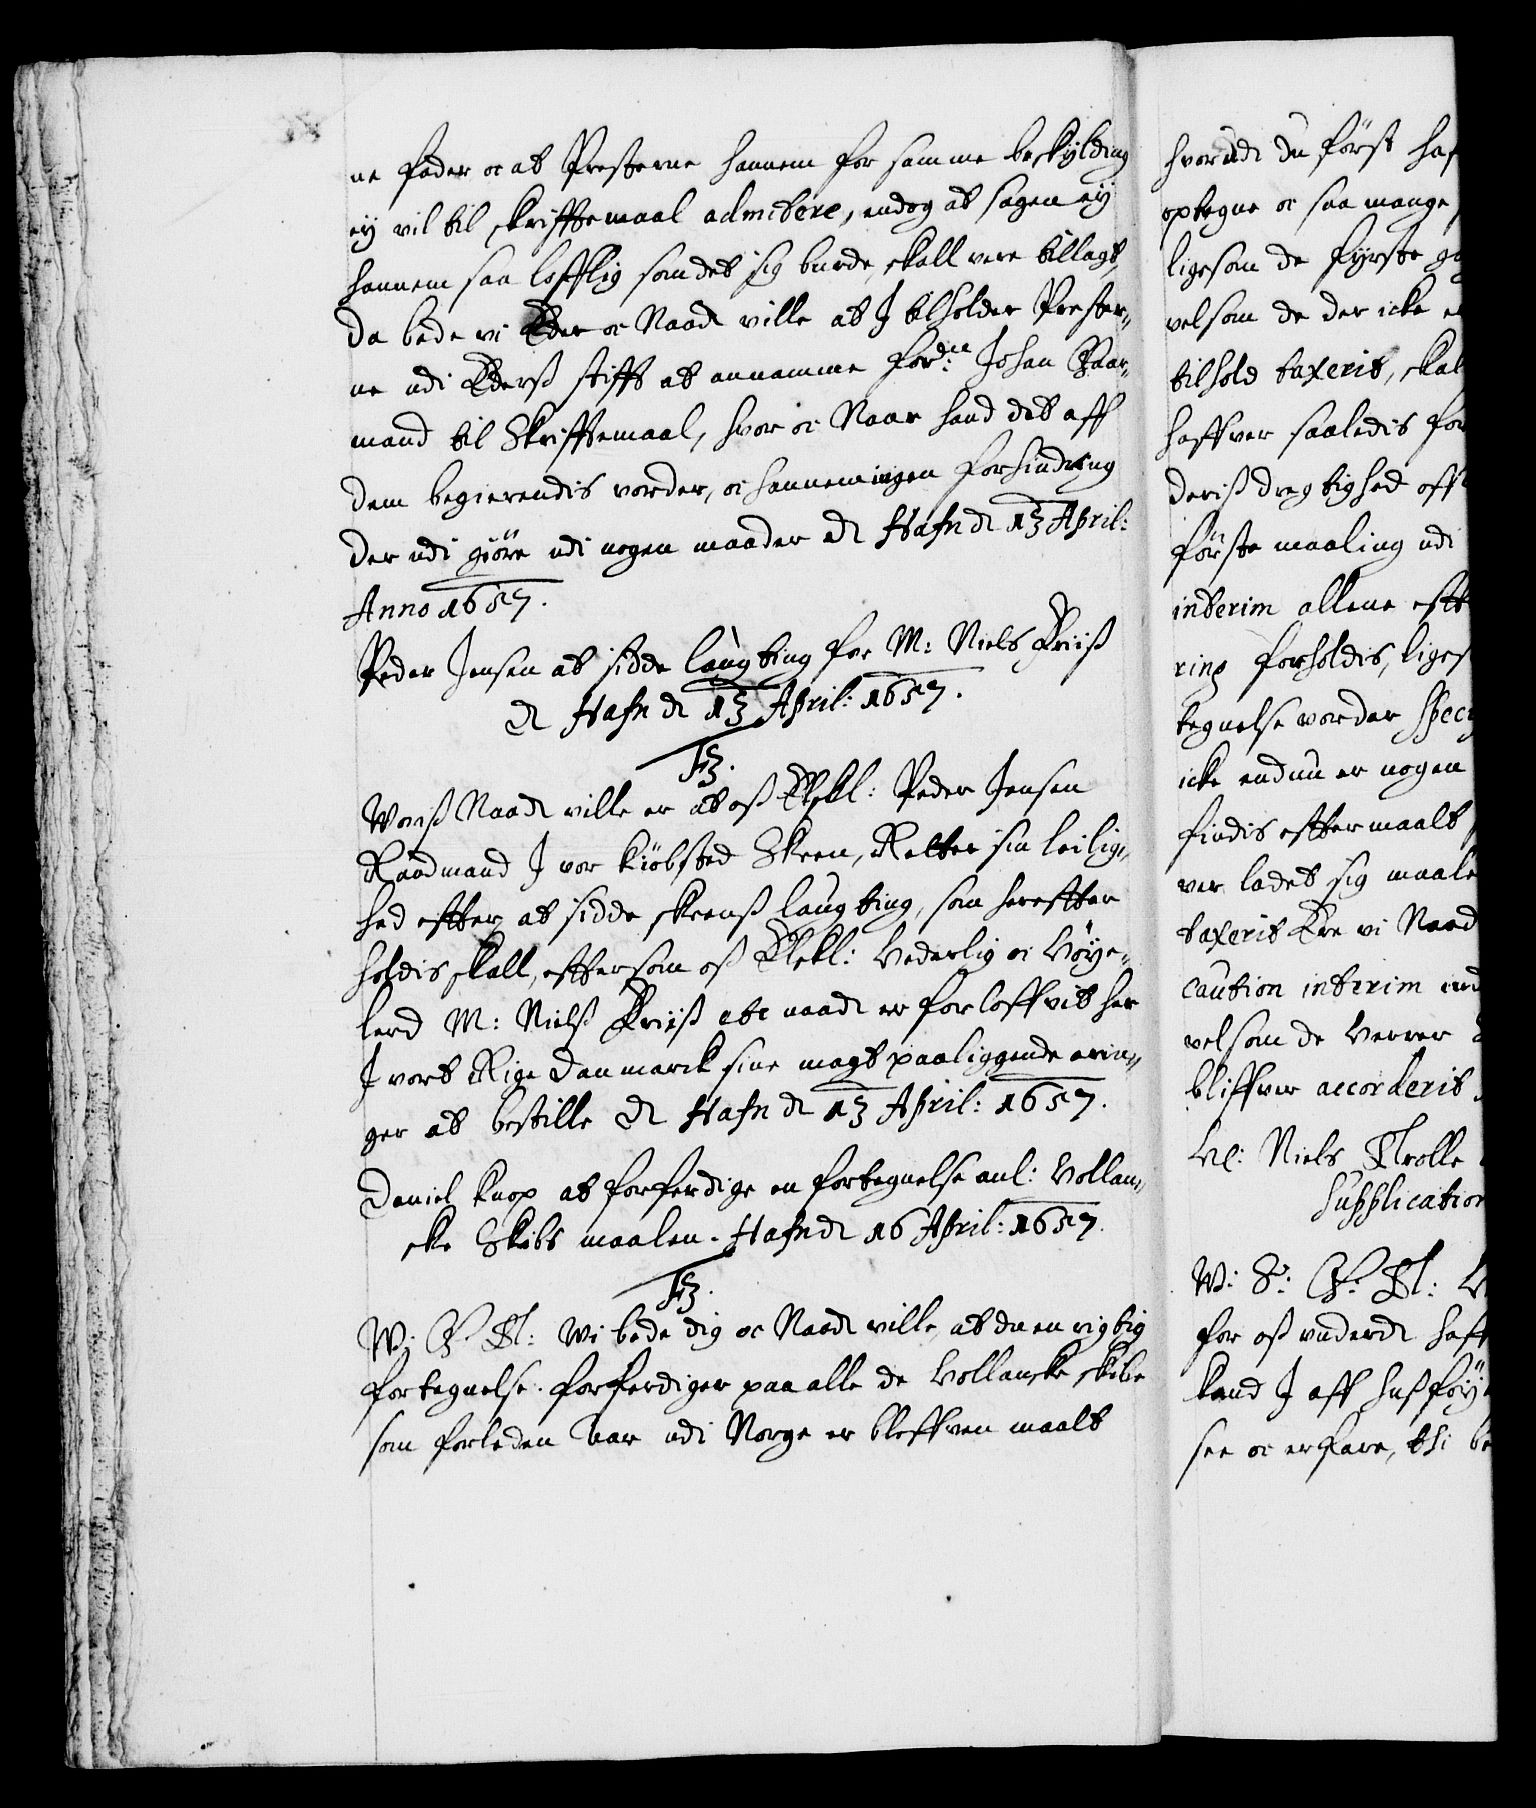 ne fader oc at Presterne hannem for samme beskylding
ey vil til skrifftemaal admitere, endog at sagen ey
hannem saa lofflig som det sig burde, skall vere tillagt,
da bede vi Eder oc Naadl ville at I tilholder Prester,,
ne udi Eders stifft at annamme fordne Johan Paar,,
mand til Skrifftemaal, hvor oc Naar hand det aff
dem begierendis vorder, oc hannem ingen forhindring
der udi giöre udi nogen maader dl Hafn dl 13 April:
Anno 1657.
Peder Jensen at sidde laugting for M: Niels Friis
dl Hafn dl 13 April: 1657.
F3.
Woris Naadl ville er at oß Elskl: Peder Jensen
Raadmand I vor kiöbsted Skeen, Retter sin leilig,,
hed effter, at sidde skeens laugting, som hereffter
holdis skall, effter som oß Elskl: Vederlig oc Vöye,,
lerd M: Niels Friis etc naadl er forloffvit her
I vort Rige Danmarck sine magt paaliggende erin,,
ger at bestille dl Hafn dl 13 April: 1657.
Daniel Knop at forferdige en fortegnelse anl: Hollan,,
ske Skibs maalen. Hafn dl 16 April: 1657
F3.
W: G: Tl: Wi bede dig oc Naadl ville, at du en rigtig
fortegnelse forferdiger paa alle de Hollanske skibe
som forleden Aar udi Norge er bleffven maalt
hvorudi du först haf
optegne oc saa mange
ligesom de fyrste
velsom de der icke
tilhold taxerit, skal
haffver saaledis for
deris dregtighed
förste maaling udi
interim allene efft
ring forholdis, liges
tegnelse vorder specy
icke endnu er nogen
findis effter maalt
ver ladet sig maale
taxerit Ere vi Naad
caution interim
velsom de verrer
bliffver accorderit
Vl: Niels Trolle
supplication
W: S: G: Tl:
for oß underdl haff
kand I aff hosföy
see oc erfare, thi be